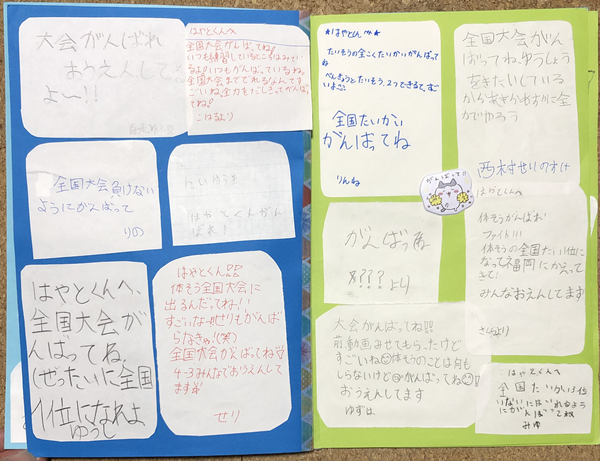 大会がんばれ
おうえんして
よ〜!!
はやとくんへ
全国大会がんばってね!
いつも練習している
るよ!いつもがんばっているね。
全国大会まででれるなんてす
ごいね!全力をだしきってがんば
ってね!
こはるより
全国大会負けない
ようにがんばって
りの
はやとくんがん
ばれ!
はやとくんへ、
全国大会が
んばってね。
ぜったいに全国
1位になれよ
ゆうし
はやとくん!!
体そう全国大会に
出るんだってね!!
すごいな〜!!せりもがんば
らなきゃ!(笑)
全国大会がんばってね
4-3みんなでおうえんして
ます
せり
はやとくんへ
たいそうの全こくたいかいがんばって
ね
べんきょうとたいそう、2つできるって、す
ごいよ
全国たいかい
がんばってね
りんね
全国大会がん
ばってね。ゆうしょう
をきたいしている
からあきらめずに全
力でやろう
西村
がんばって!!
がんばっ
8???より
はやとくんへ
体そうがんばお!
ファイト!!!
体そうの全国たい1位に
なって福岡にかえって
きて!
みんなおえんしてます
より
大会がんばってね!!
前動画させてもらったけど
すごいね 体そうのことは何も
しらないけど がんばってね!
おうえんしてます
はやとくんへ
全国たいかい3位
いないにはいれるよう
にがんばってね
みゆ